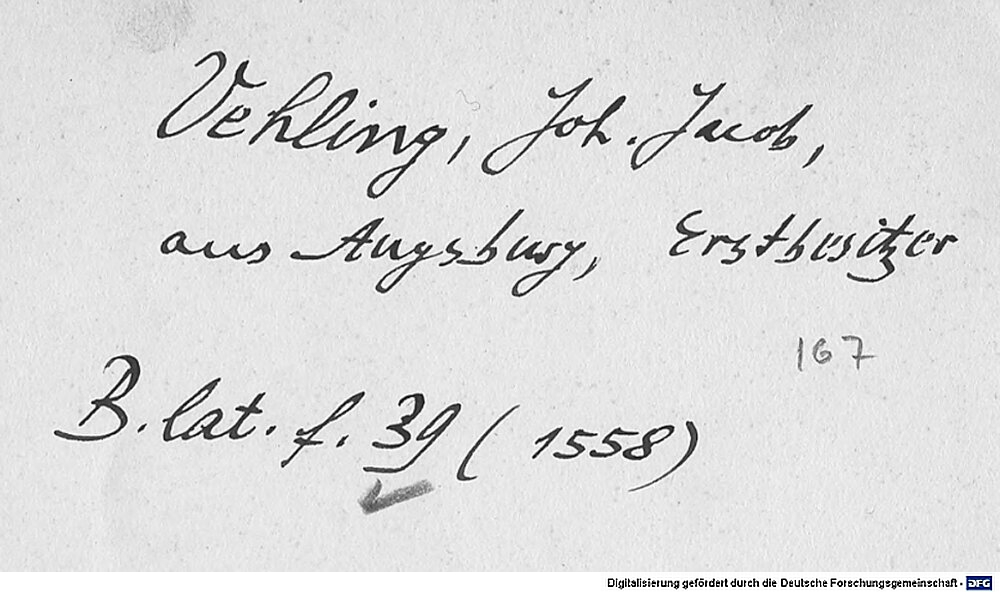 Vehling, Joh. Jacob,
aus Augsburg, Erstbesitzer
167
B. lat. f. 39 (1558)
Digitalisierung gefördert durch die Deutsche Forschungsgemeinschaft - DFG